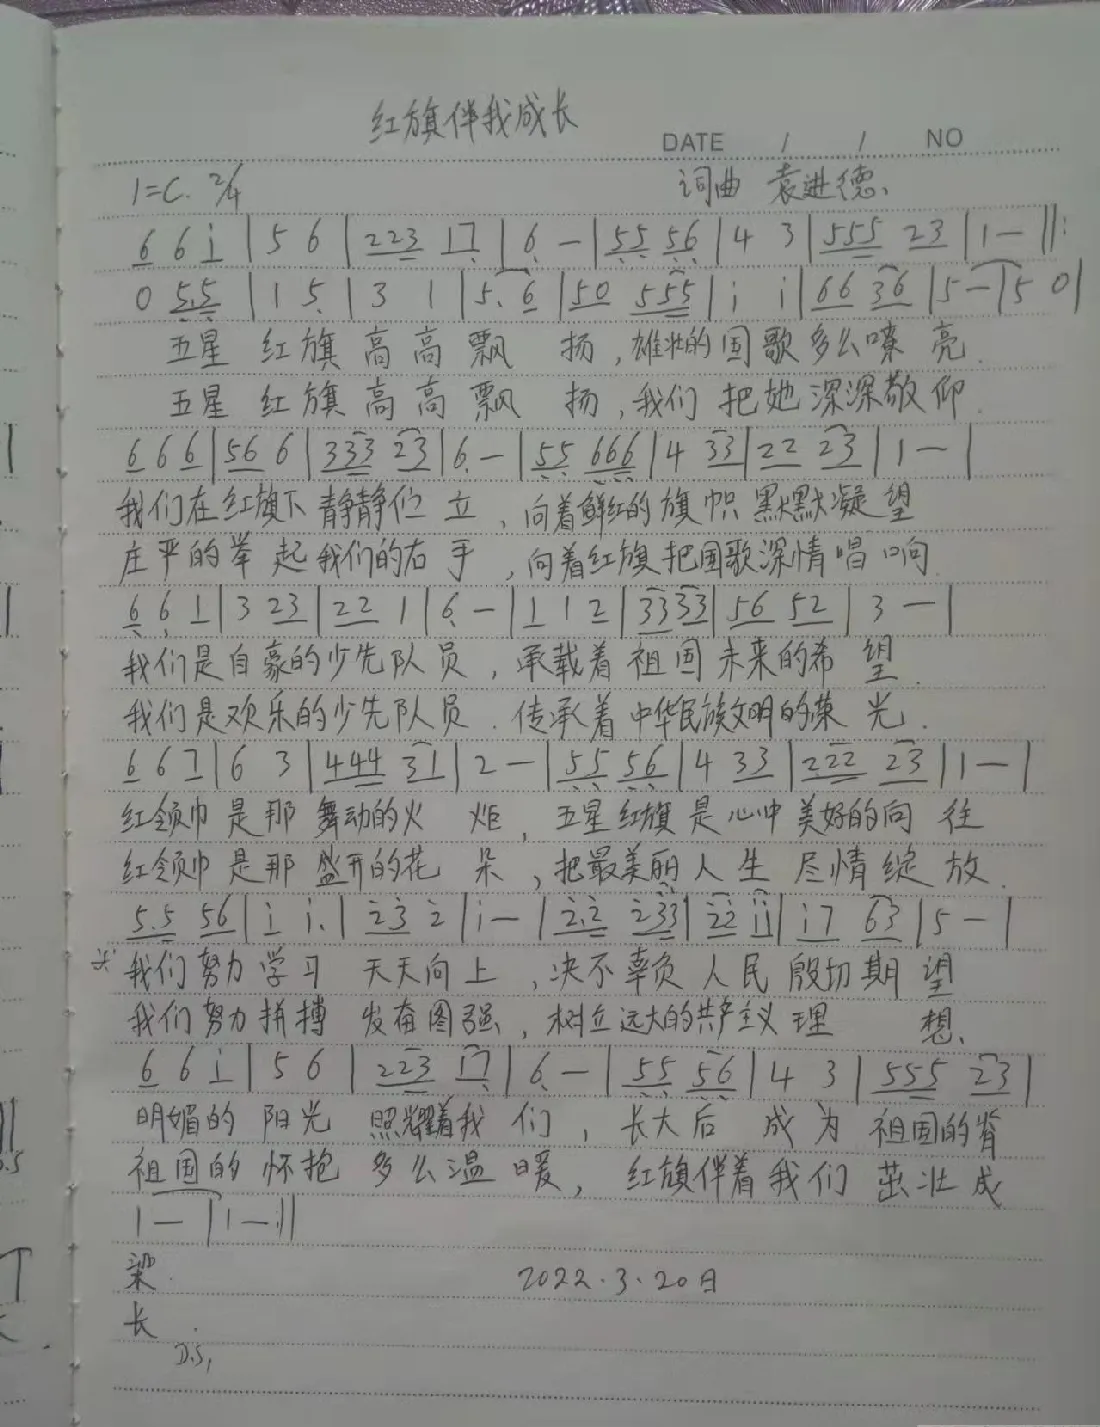 红旗伴我成长
DATE / / NO
1=C. 2/4
词曲 袁进德.
6 6 i | 5 6 | 223 17 | 6 — | 55 56 | 4 3 | 555 23 | 1 — ||:
0 5.5 | 1 5 | 3 1 | 5. 6 | 50 555 | i i | 66 36 | 5 — | 5 0 |
五星 红旗 高高飘 扬,雄壮的国歌多么嘹亮.
五星 红旗 高高飘 扬,我们把她深深敬仰.
6 6 6 | 56 6 | 333 23 | 6 — | 55 666 | 4 33 | 22 23 | 1 — |
我们在红旗下静静伫立,向着鲜红的旗帜默默凝望
庄严的举起我们的右手,向着红旗把国歌深情唱响
6 6 1 | 3 23 | 22 1 | 6 — | 1 1 2 | 3333 | 56 52 | 3 — |
我们是自豪的少先队员,承载着祖国未来的希望.
我们是欢乐的少先队员.传承着中华民族文明的荣光.
6 6 7 | 6 3 | 444 31 | 2 — | 55 56 | 4 33 | 222 23 | 1 — |
红领巾是那舞动的火炬,五星红旗是心中美好的向往
红领巾是那盛开的花朵,把最美丽人生尽情绽放.
5.5 56 | i i. | 23 2 | i — | 2.2 233 | 22 ii | i7 63 | 5 — |
我们努力学习 天天向上,决不辜负人民殷切期望
我们努力拼搏 发奋图强,树立远大的共产主义理想.
6 6 i | 5 6 | 223 17 | 6 — | 55 56 | 4 3 | 555 23 |
明媚的阳光照耀着我们,长大后成为祖国的脊
祖国的怀抱多么温暖,红旗伴着我们茁壮成
1 — | 1 — :||
梁.
2022.3.20日
长.
D.S,